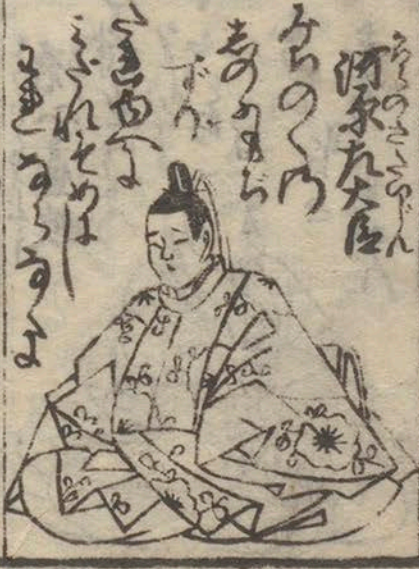 かはらのさだいじん
河原左大臣
みちのくの
しのぶもぢ
ずり
たれ故に
みだれそめにし
われならなくに